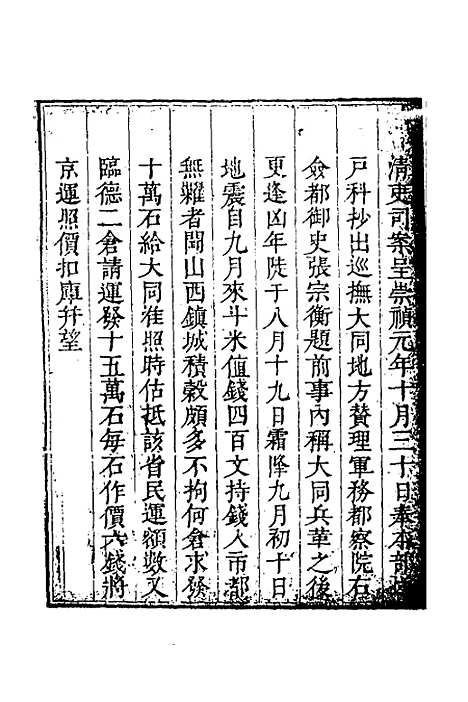 清吏司案呈崇禎元年十月三十日奉本部
戶科抄出巡撫大同地方贊理軍務都察院右
僉都御史張宗衡題前事內稱大同兵革之後
更逢凶年陡于八月十九日霜降九月初十日
地震自九月來斗米值錢四百文持錢入市都
無糶者聞山西鎮城積穀頗多不拘何倉求發
十萬石給大同准照時估抵該省民運額數又
臨德二倉請運發十五萬石每石作價六錢將
京運照價扣庫并望